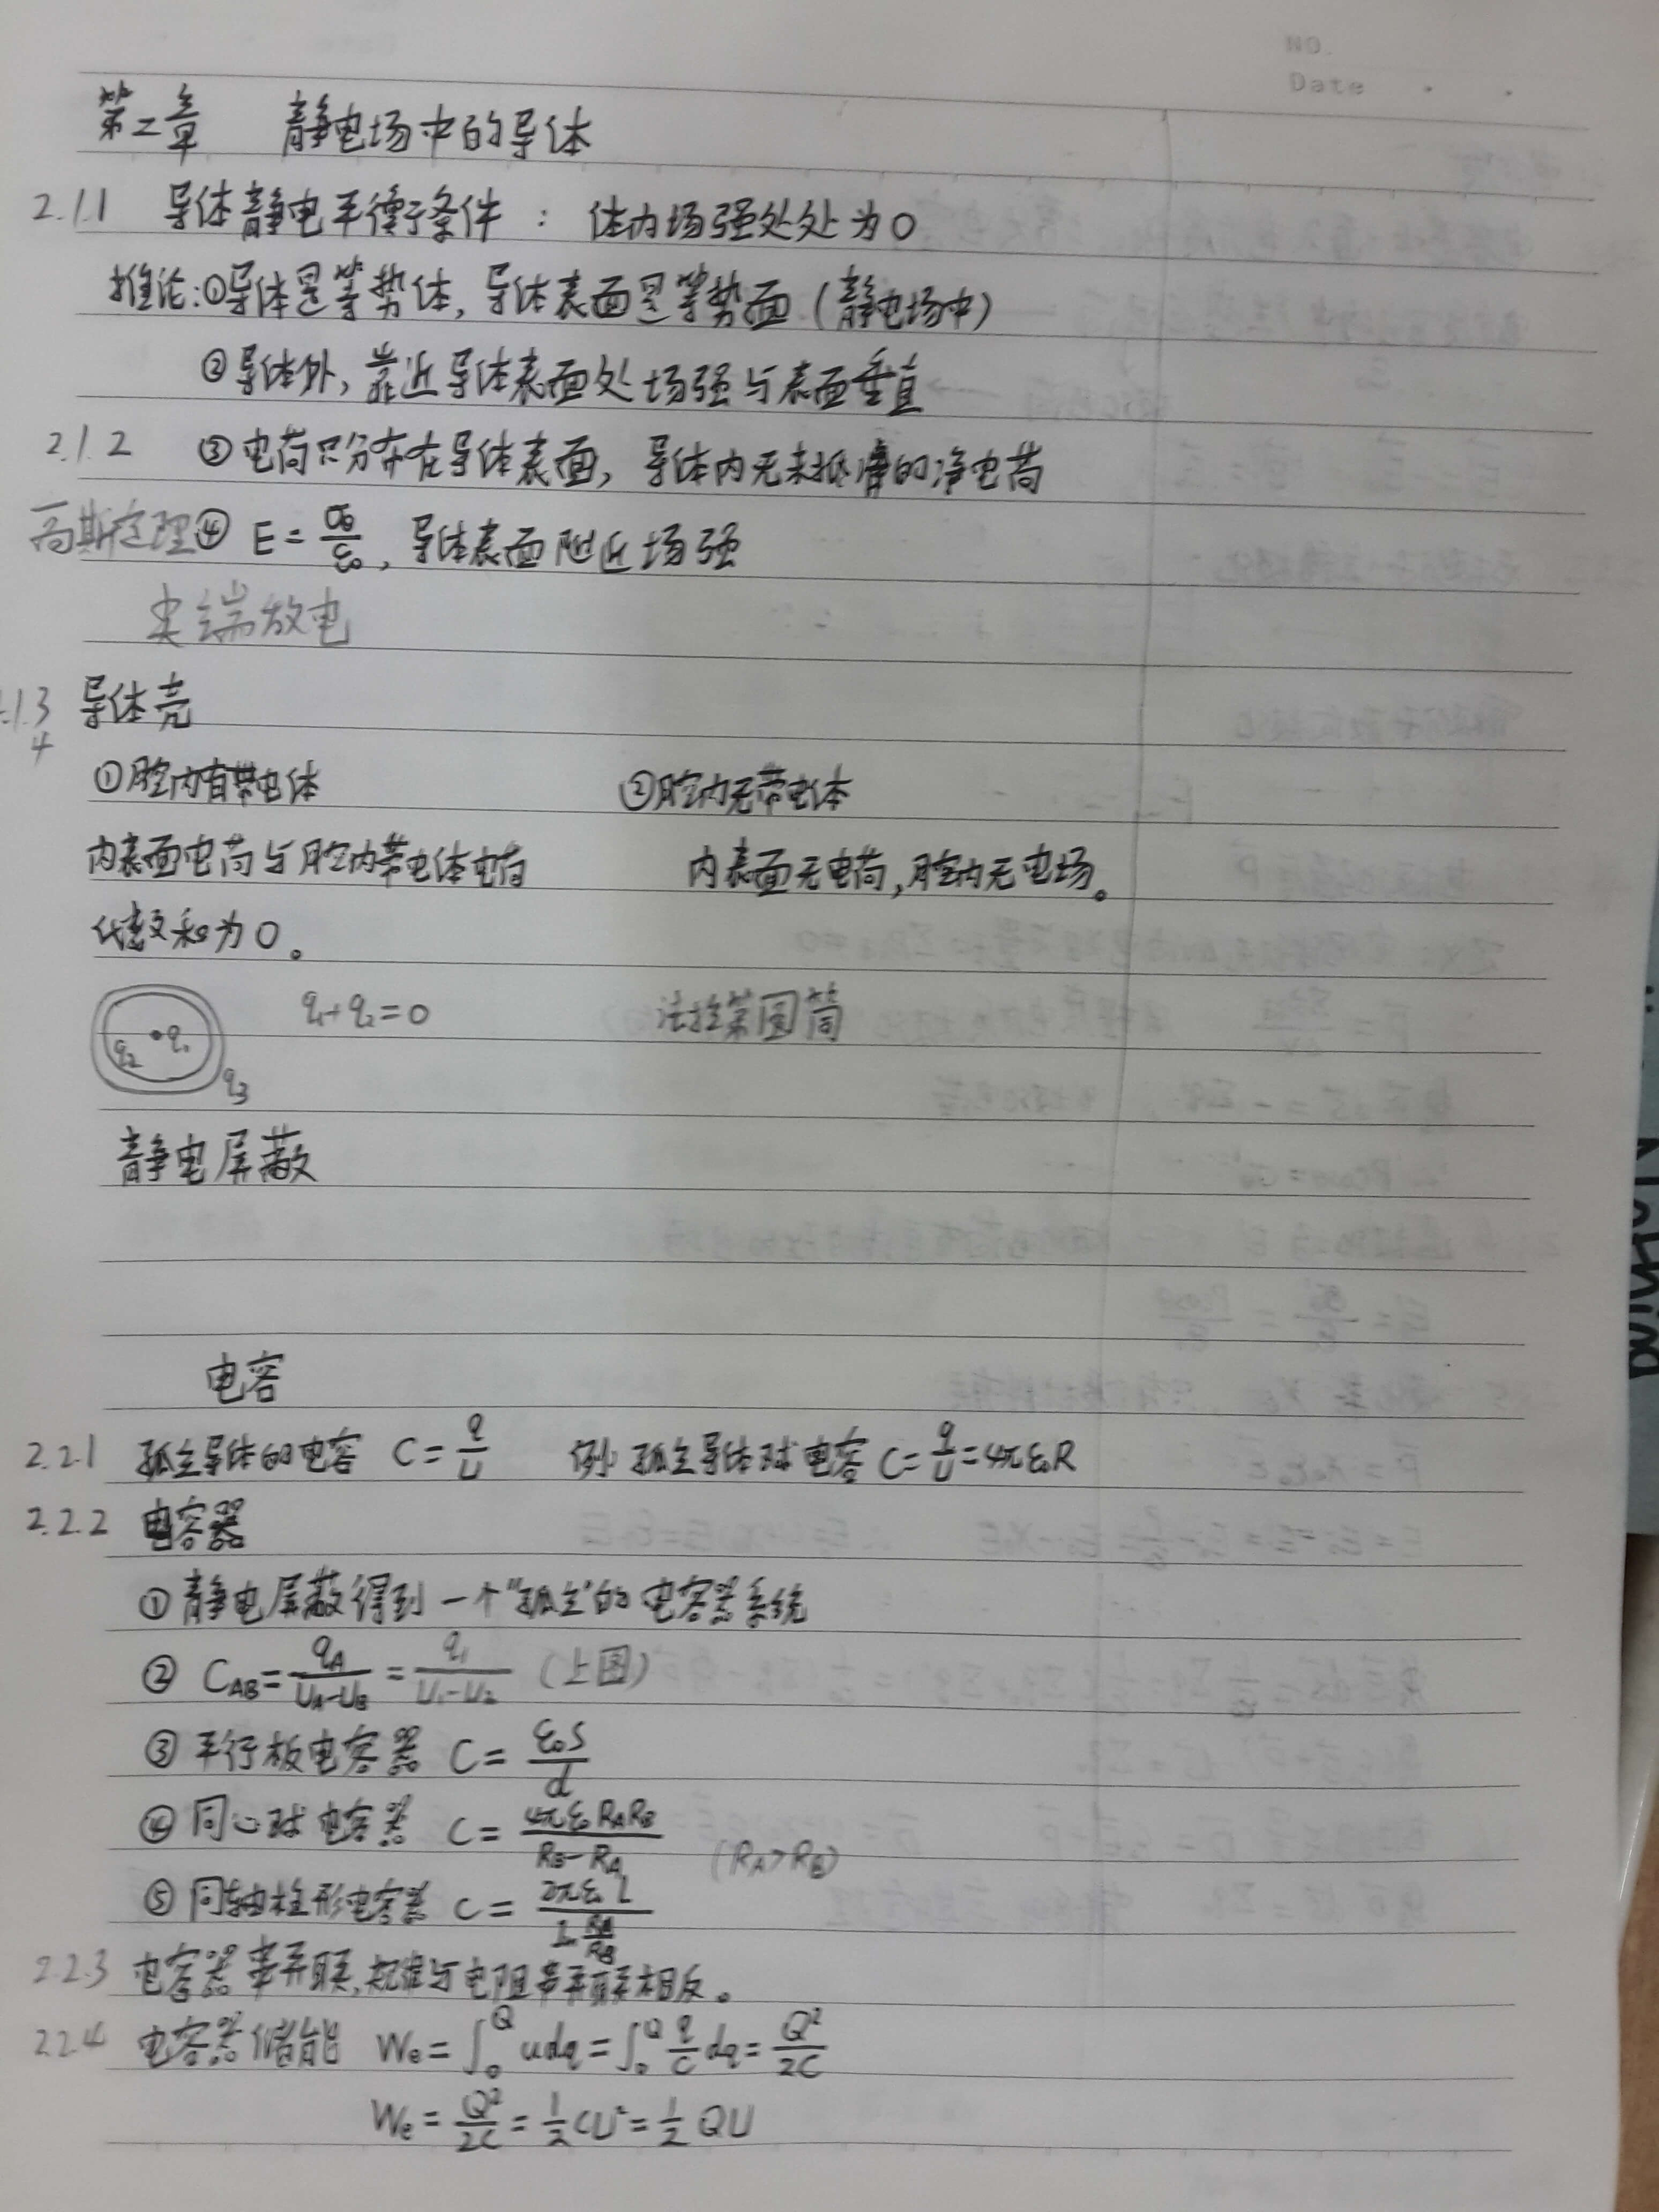 NO.
Date
第二章 静电场中的导体
2.1.1 导体静电平衡条件：体内场强处处为0
推论:①导体是等势体,导体表面是等势面(静电场中)
②导体外,靠近导体表面处场强与表面垂直
2.1.2 ③电荷只分布在导体表面,导体内无未抵消的净电荷
高斯定理④ E=σ₀/ε₀,导体表面附近场强
尖端放电
2.1.3 导体壳
4
①腔内有带电体 ②腔内无带电体
内表面电荷与腔内带电体电荷 内表面无电荷,腔内无电场。
代数和为0。
q₁+q₂=0 法拉第圆筒
q₂ q₁ q₃
静电屏蔽
电容
2.2.1 孤立导体的电容 C=q/U 例: 孤立导体球电容 C=q/U=4πε₀R
2.2.2 电容器
①静电屏蔽得到一个"孤立"的电容器系统
② C_AB=q_A/(U_A-U_B)=q₁/(U₁-U₂) (上图)
③平行板电容器 C=ε₀S/d
④同心球电容器 C=4πε₀R_AR_B/(R_B-R_A) (R_A>R_B)
⑤同轴柱形电容器 C=2πε₀L/(ln R_A/R_B)
2.2.3 电容器串并联,规律与电阻串并联相反。
2.2.4 电容器储能 We=∫₀^Q udq=∫₀^Q q/C dq=Q²/2C
We=Q²/2C=1/2 CU²=1/2 QU